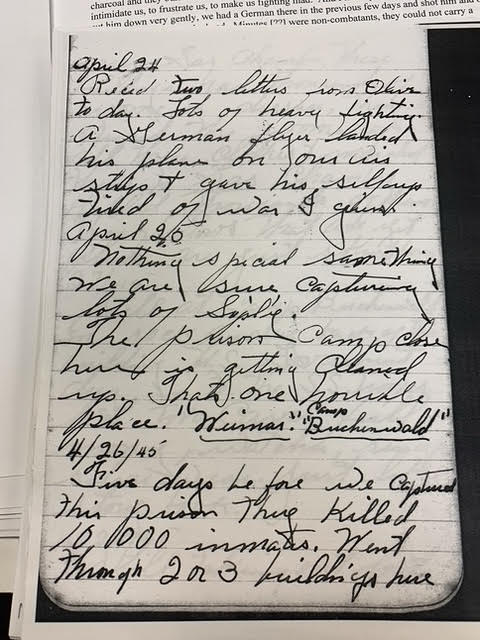 charcoal and they
intimidate us, to frustrate us, to make us fighting mad. And
him down very gently, we had a German there in the previous few days and shot him and
were non-combatants, they could not carry a
April 24
Rec'd two letters from Olive
to day. Lots of heavy fighting.
A German flyer landed
his plane on our air
strip & gave his self up
tired of war I guess.
April 25
Nothing special same thing
We are sure capturing
lots of
The prison camp close
here is getting cleaned
up. Thats one horrible
place. "Weimar." Camp "Buchenwald"
4/26/45
Five days be fore we captured
this prison they killed
10 000 inmates. Went
through 2 or 3 buildings here